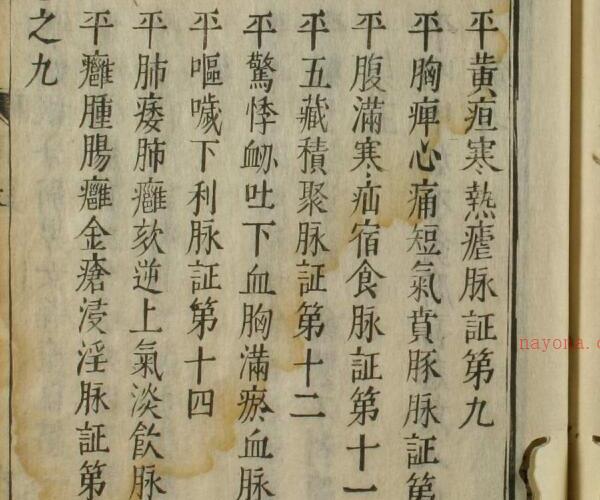 平黄疸寒熱瘧脉証第九
平胸痺心痛短氣賁豚脉証第
平腹滿寒疝宿食脉証第十一
平五藏積聚脉証第十二
平驚悸衂吐下血胸滿瘀血脉
平嘔噦下利脉証第十四
平肺痿肺癰欬逆上氣淡飲脉
平癰腫腸癰金瘡浸淫脉証第
之九
nayona.c